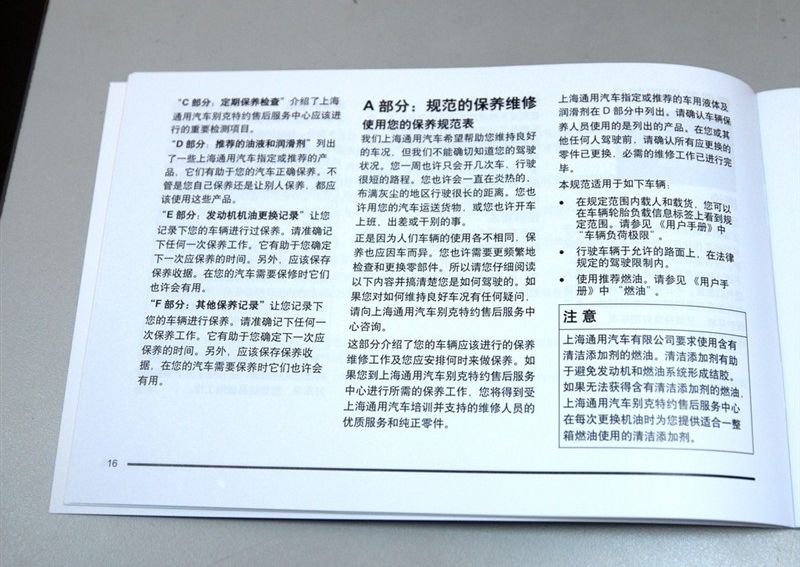 “C 部分：定期保养检查”介绍了上海
通用汽车别克特约售后服务中心应该进
行的重要检测项目。
“D 部分：推荐的油液和润滑剂”列出
了一些上海通用汽车指定或推荐的产
品，它们有助于您的汽车正确保养。不
管是您自己保养还是让别人保养，都应
该使用这些产品。
“E 部分：发动机机油更换记录”让您
记录下您的车辆进行过保养。请准确记
下任何一次保养工作。它有助于您确定
下一次应保养的时间。另外，应该保存
保养收据。在您的汽车需要保修时它们
也许会有用。
“F 部分：其他保养记录”让您记录下
您的车辆进行保养。请准确记下任何一
次保养工作。它有助于您确定下一次应
保养的时间。另外，应该保存保养收
据，在您的汽车需要保养时它们也许会
有用。
A 部分：规范的保养维修
使用您的保养规范表
我们上海通用汽车希望帮助您维持良好
的车况，但我们不能确切知道您的驾驶
状况。您一周也许只会开几次车，行驶
很短的路程。您也许会一直在炎热的、
布满灰尘的地区行驶很长的距离。您也
许用您的汽车运送货物，或您也许开车
上班、出差或干别的事。
正是因为人们车辆的使用各不相同，保
养也应因车而异。您也许需要更频繁地
检查和更换零部件。所以请您仔细阅读
以下内容并搞清楚您是如何驾驶的。如
果您对如何维持良好车况有任何疑问，
请向上海通用汽车别克特约售后服务中
心咨询。
这部分介绍了您的车辆应该进行的保养
维修工作及您应安排何时来做保养。如
果您到上海通用汽车别克特约售后服务
中心进行所需的保养工作，您将得到受
上海通用汽车培训并支持的维修人员的
优质服务和纯正零件。
上海通用汽车指定或推荐的车用液体及
润滑剂在 D 部分中列出。请确认车辆保
养人员使用的是列出的产品。在您或其
他任何人驾驶前，请确认所有应更换的
零件已更换，必需的维修工作已进行完
毕。
本规范适用于如下车辆：
• 在规定范围内载人和载货，您可以
在车辆轮胎负载信息标签上看到规
定范围。请参见《用户手册》中
“车辆负荷极限”。
• 行驶车辆于允许的路面上，在法律
规定的驾驶限制内。
• 使用推荐燃油。请参见《用户手
册》中“燃油”。
注意
上海通用汽车有限公司要求使用含有
清洁添加剂的燃油。清洁添加剂有助
于避免发动机和燃油系统形成结胶。
如果无法获得含有清洁添加剂的燃油，
上海通用汽车别克特约售后服务中心
在每次更换机油时为您提供适合一整
箱燃油使用的清洁添加剂。
16